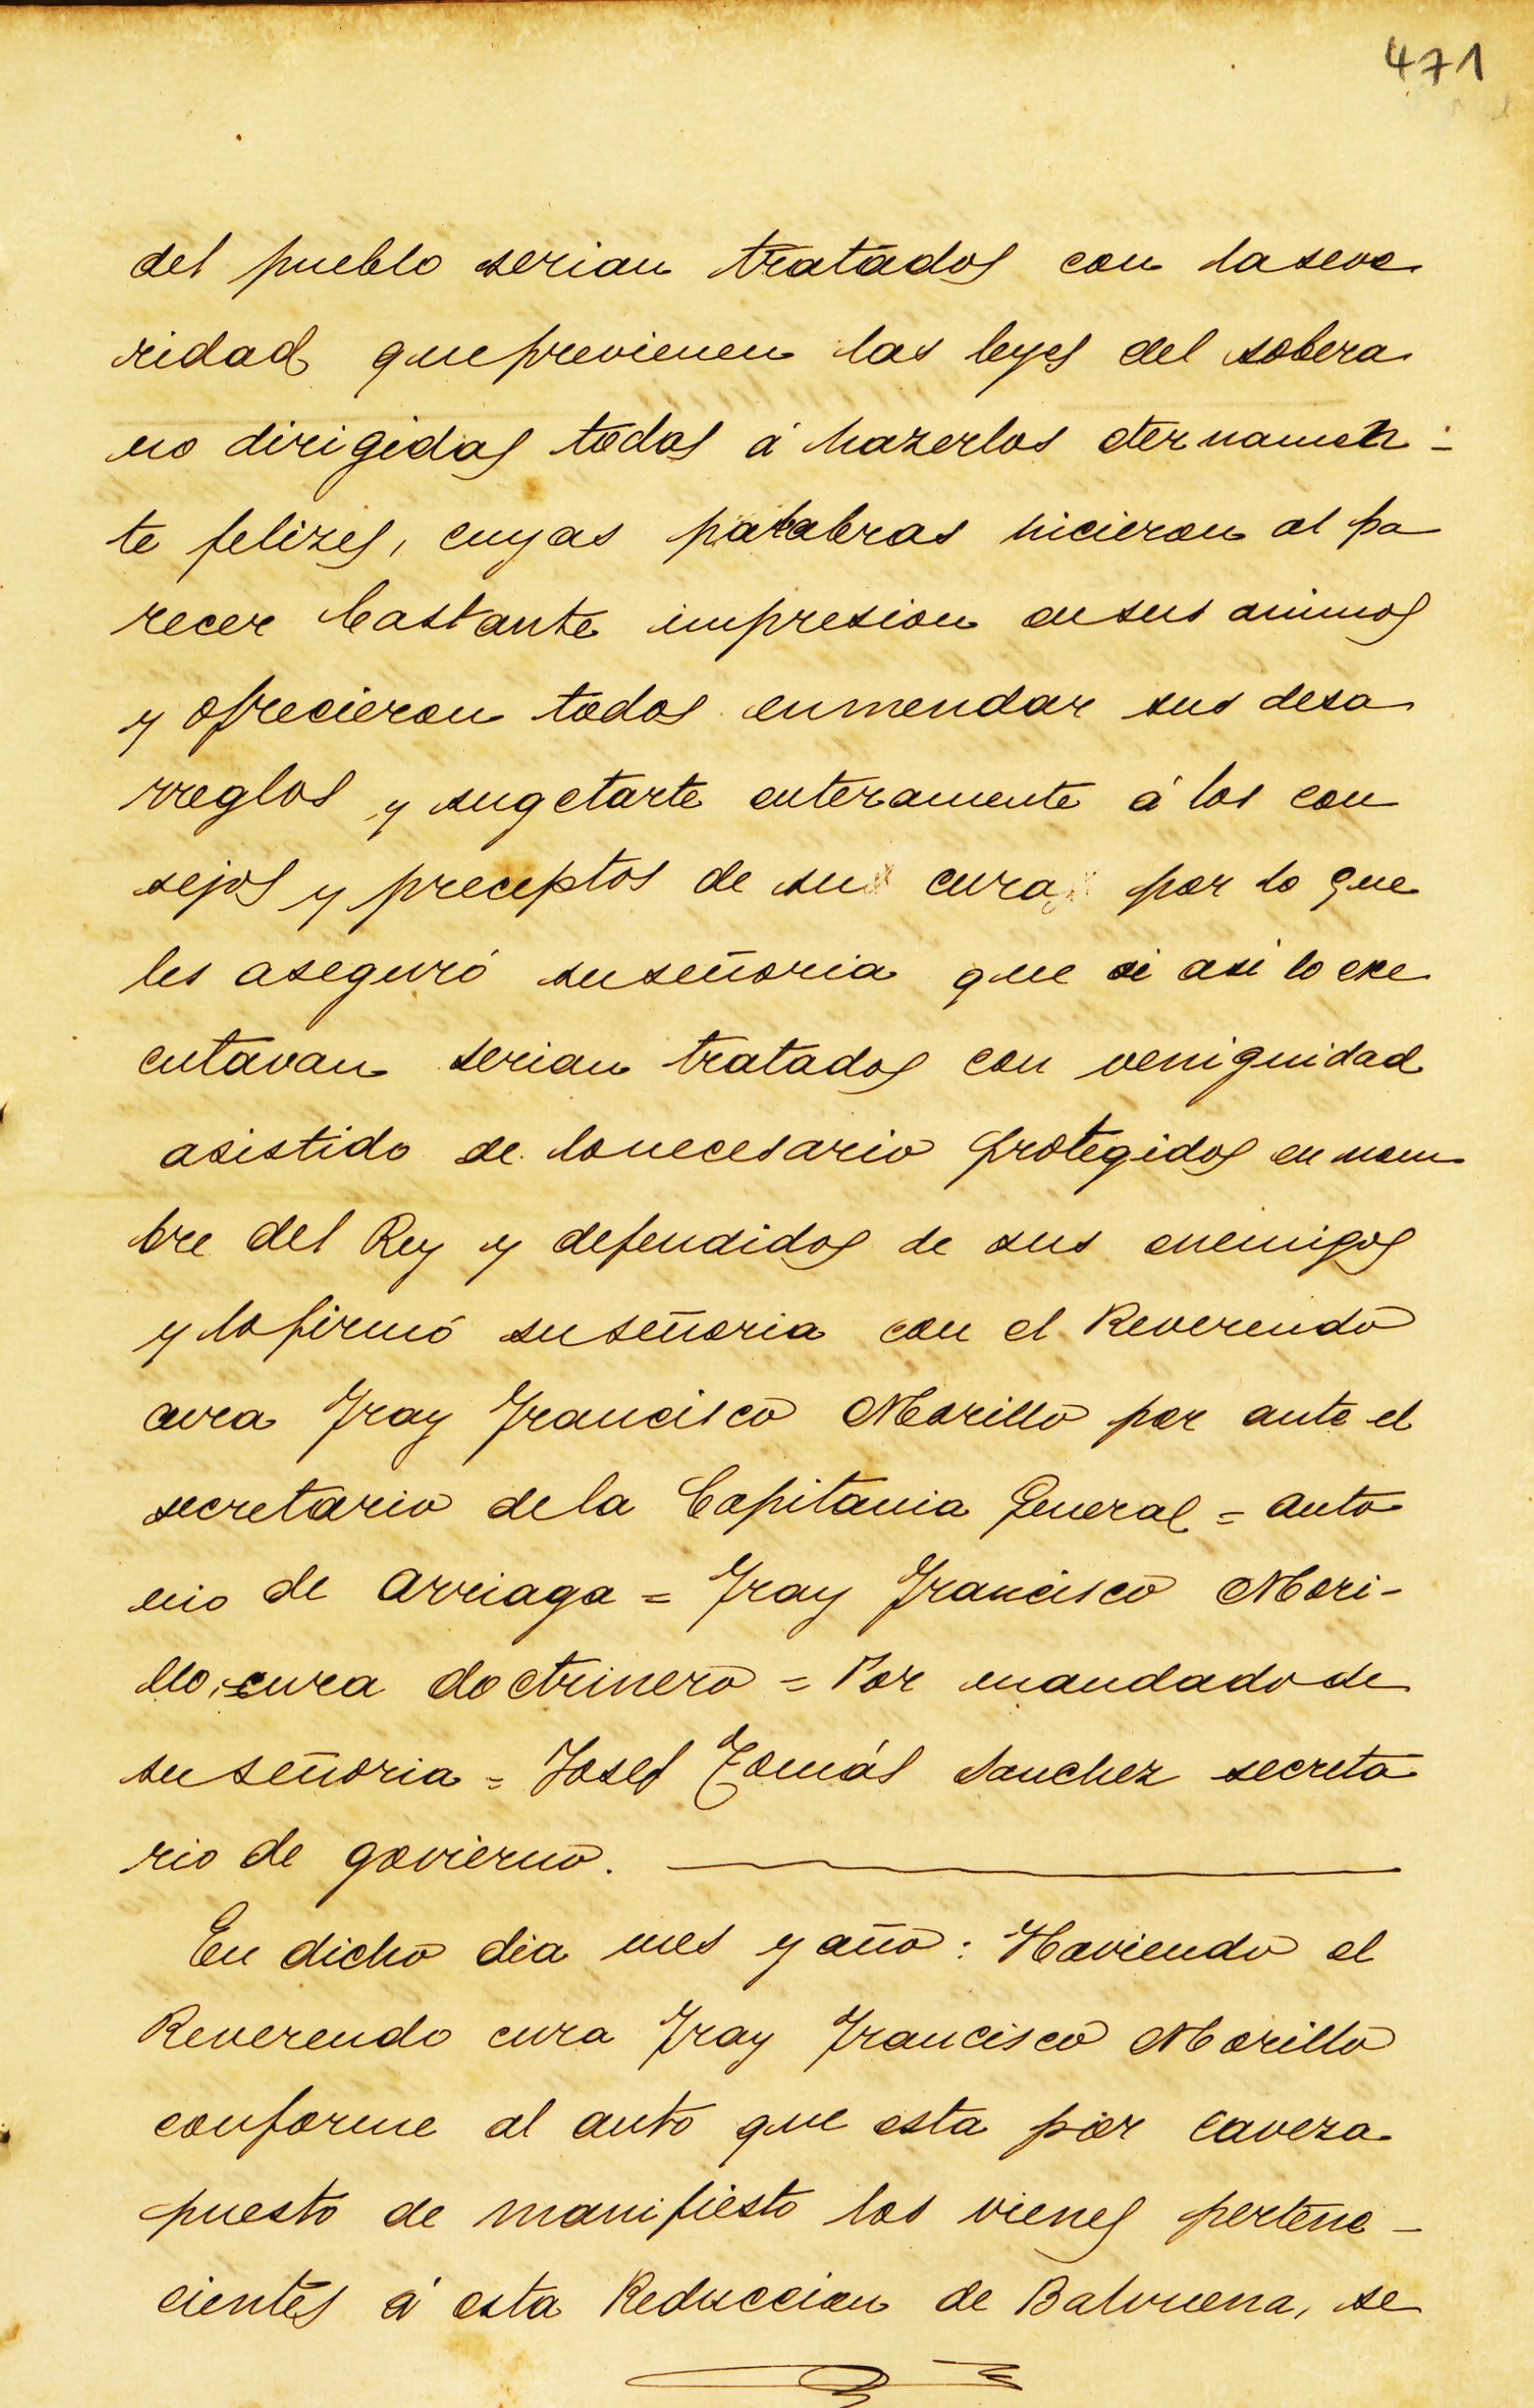 471
del pueblo serian tratados con laseve
ridad queprevienen las leyes del sobera
no dirigidas todas á hazerlos eternamen-
te felizes, cuyas palabras hicieron al pa
recer bastante impresion ensus animos
y ofrecieron todos enmendar sus desa
rreglos y sugetarte enteramente á los con
sejos y preceptos de su cura por lo que
les aseguró suseñoria que si asi lo exe
cutavan serian tratados con venignidad
asistido de lonecesario protegidos en nom
bre del Rey y defendidos de sus enemigos
y lo firmó suseñoria con el Reverendo
cura Fray Francisco Morillo por ante el
secretario dela Capitania General = Anto
nio de Arriaga = Fray Francisco Mori-
llo, cura doctrinero = Por mandado de
su señoria = Josef Tomás Sanchez secreta
rio de govierno.
En dicho dia mes y año: Haviendo el
Reverendo cura Fray Francisco Morillo
conforme al auto que esta por caveza
puesto de manifiesto los vienes pertene-
cientes á esta Reduccion de Balvuena, se